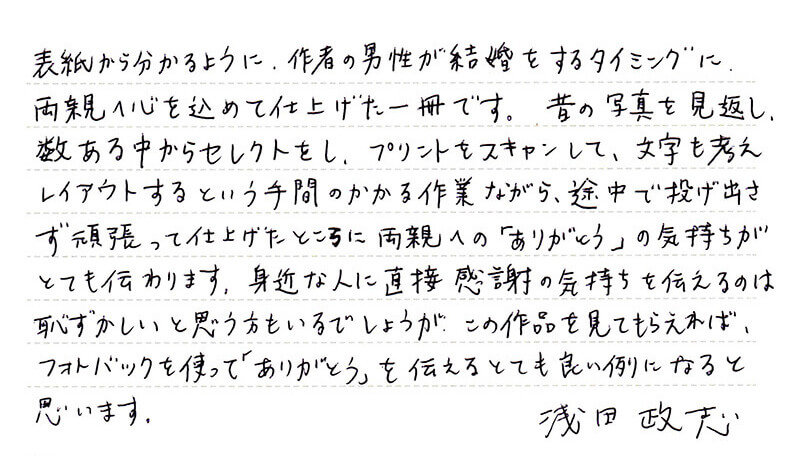 表紙から分かるように、作者の男性が結婚をするタイミングに、
両親へ心を込めて仕上げた一冊です。昔の写真を見返し、
数ある中からセレクトをし、プリントをスキャンして、文字も考え
レイアウトするという手間のかかる作業ながら、途中で投げ出さ
ず頑張って仕上げたところに両親への「ありがとう」の気持ちが
とても伝わります。身近な人に直接感謝の気持ちを伝えるのは
恥ずかしいと思う方もいるでしょうが、この作品を見てもらえれば、
フォトバックを使って「ありがとう」を伝えるとても良い例になると
思います。
浅田政志